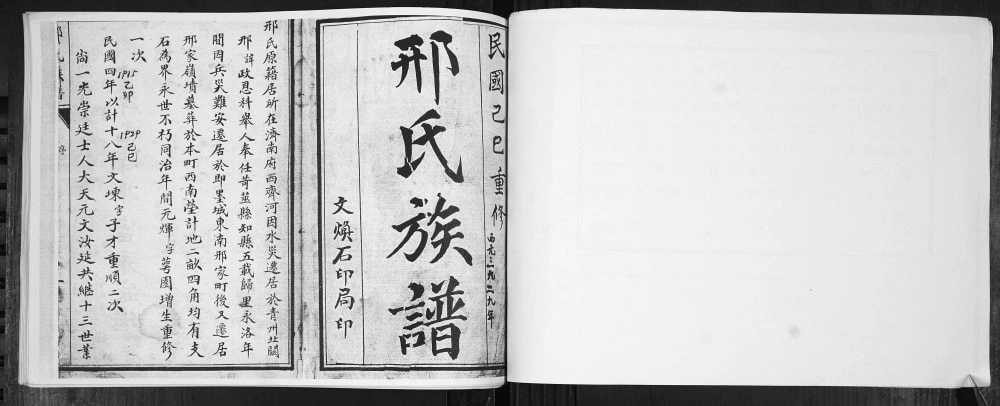 民國己巳重修 西元一九二九年
邢氏族譜
文煥石印局印
邢氏原籍居所在濟南府西齊河因水災遷居於青州北關
邢諱政恩科舉人奉任苛嵐縣知縣五載歸里永洛年
間因兵災難安遷居於即墨城東南邢家町後又遷居
邢家嶺墳墓葬於本町西南塋計地二畝四角均有支
石為界永世不朽同治年間元煇字蕚園增生重修
一次
1915乙卯 1929己巳
民國四年以計十八年文埬字子才重順二次
尚一光崇廷士人大天元文汝延共繼十三世業